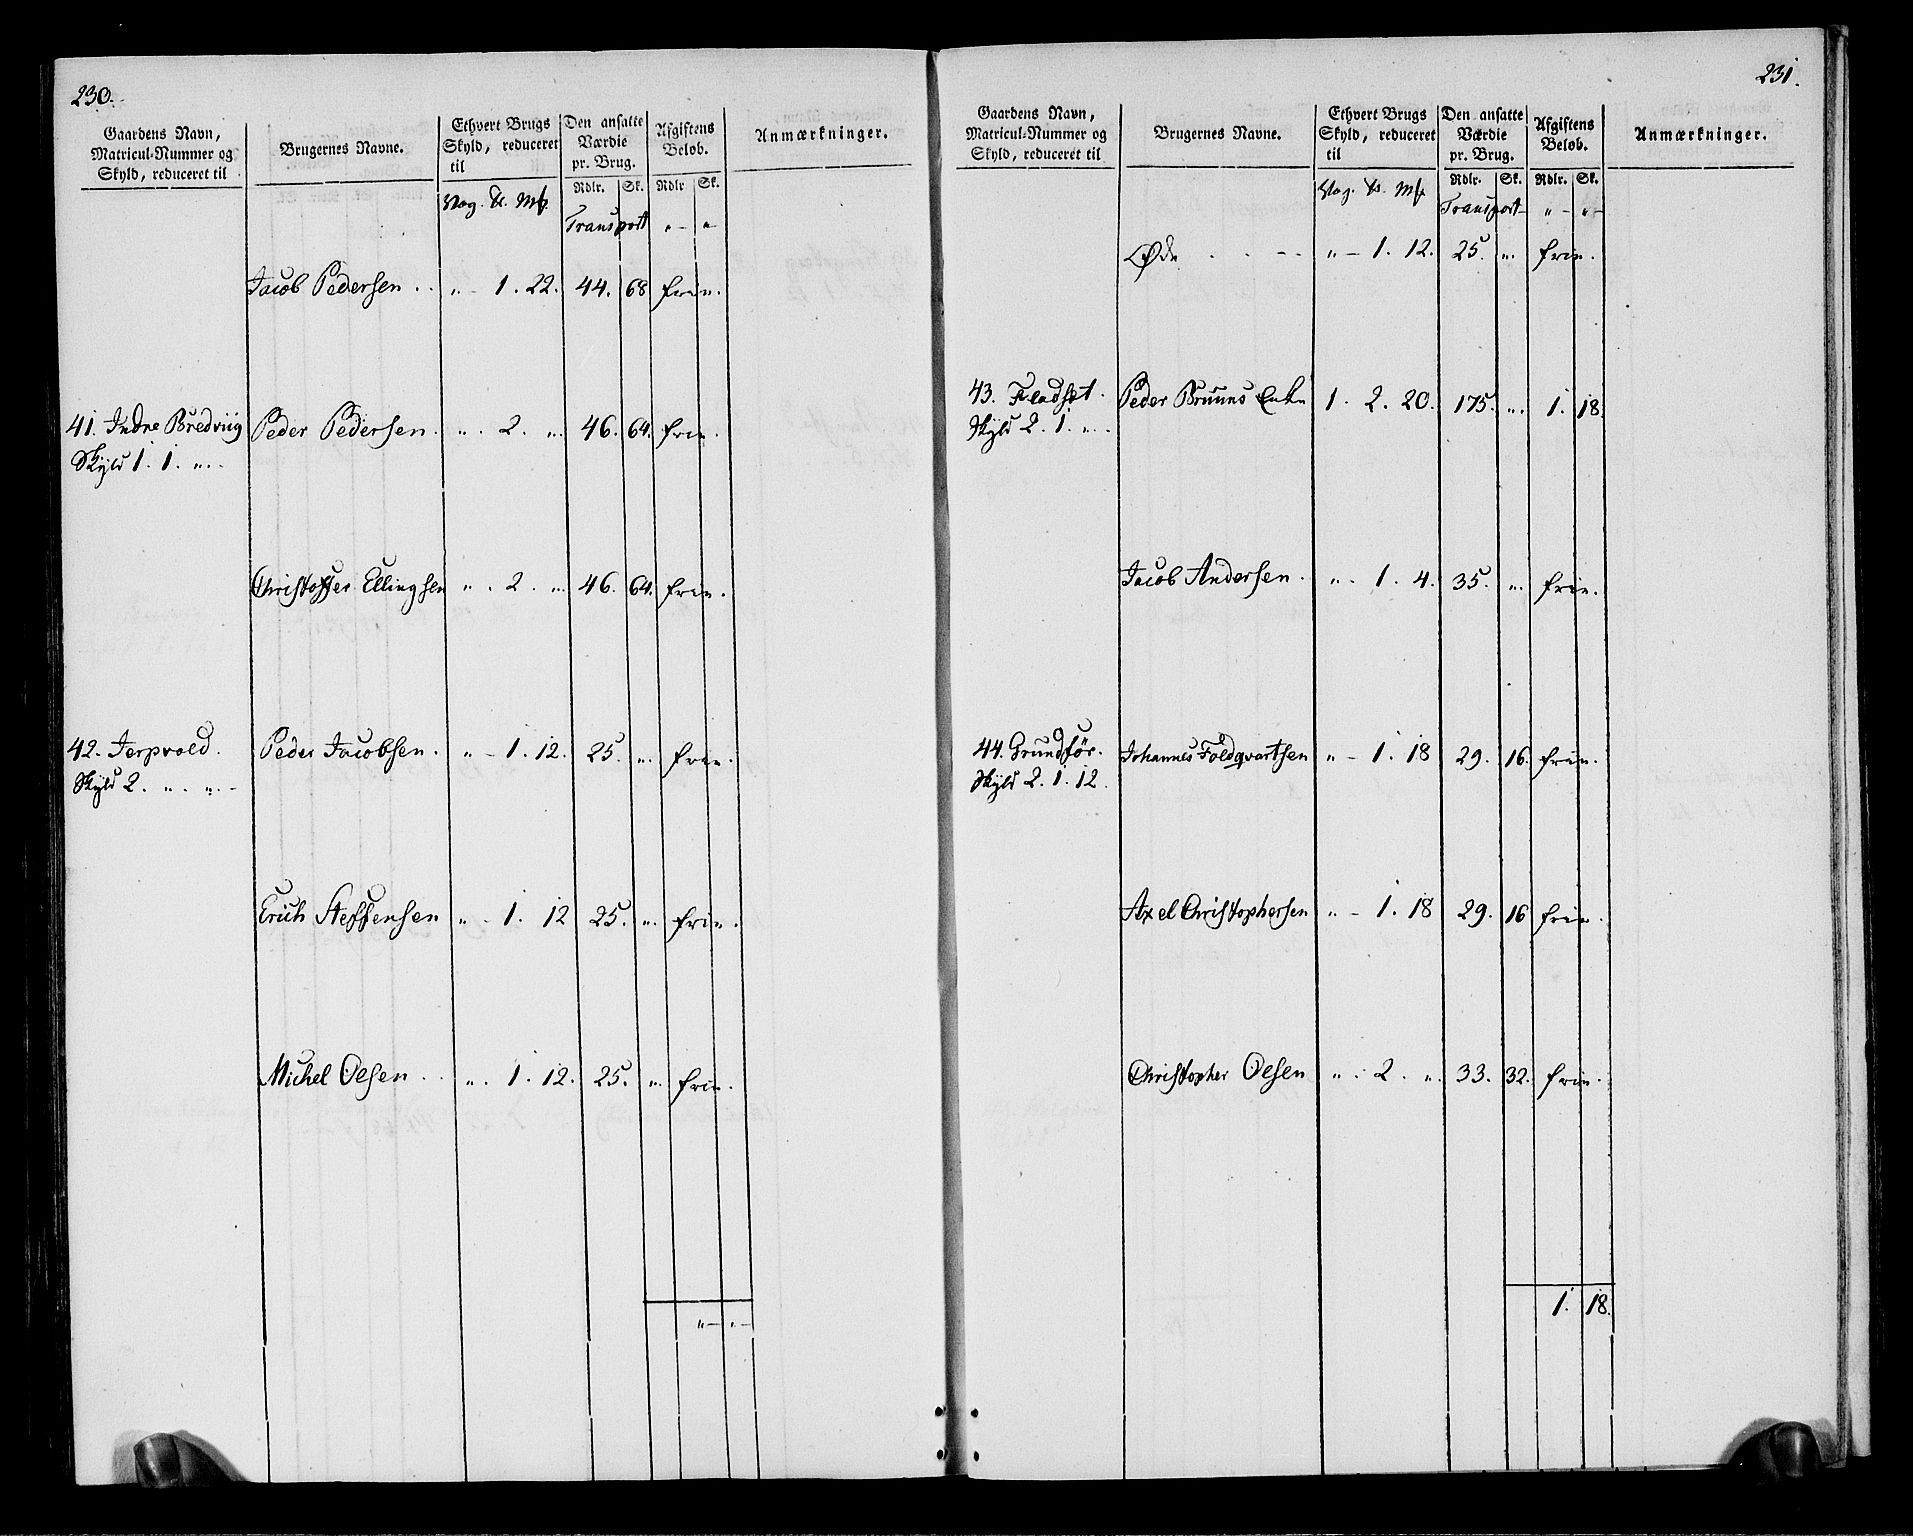 230.
Gaardens Navn,
Matricul-Nummer og
Skyld, reduceret til
Brugernes Navne.
Ethvert Brugs
Skyld, reduceret
til
Den ansatte
Værdie
pr. Brug.
Afgiftens
Beløb.
Anmærkninger.
Rdlr. Sk. Rdlr. Sk.
Vog. Mk.
Transport „ – „
Jacob Pedersen . . „ – 1. 22. 44. 68 frie.
41. Indre Bredviig Peder Pedersen. „ . 2. „ . 46. 64. frie.
Skyld 1. 1. „ . .
Christoffer Ellingsen „ . 2. „ . 46. 64. frie.
42. Jerpvold. Peder Jacobsen. „ – 1. 12. 25. „ . frie.
Skyld 2. „ . „ . –
Erich Steffensen „ – 1. 12 25. „ . frie.
Michel Olsen . . „ . 1. 12. 25. „ . frie.
„ – „ –
231.
Gaardens Navn,
Matricul-Nummer og
Skyld, reduceret til
Brugernes Navne.
Ethvert Brugs
Skyld, reduceret
til
Den ansatte
Værdie
pr. Brug.
Afgiftens
Beløb.
Anmærkninger.
Rdlr. Sk. Rdlr. Sk.
Vog. Mk.
Transport – „ – „ –
Øde . . - - „ – 1. 12. 25. „ . frie.
43. Fladset. Peder Bruuns Enke 1. 2. 20. 175. „ . 1. 18.
Skyld 2. 1. „ . .
Jacob Andersen. „ . 1. 4. 35. „ . frie.
44. Grundför. Johannes Foldqvartsen „ – 1. 18 29. 16. frie.
Skyld 2. 1. 12.
Axel Christophersen „ – 1. 18 29. 16 frie.
Christopher Olsen „ . 2. „ . 33. 32. frie.
1. 18.